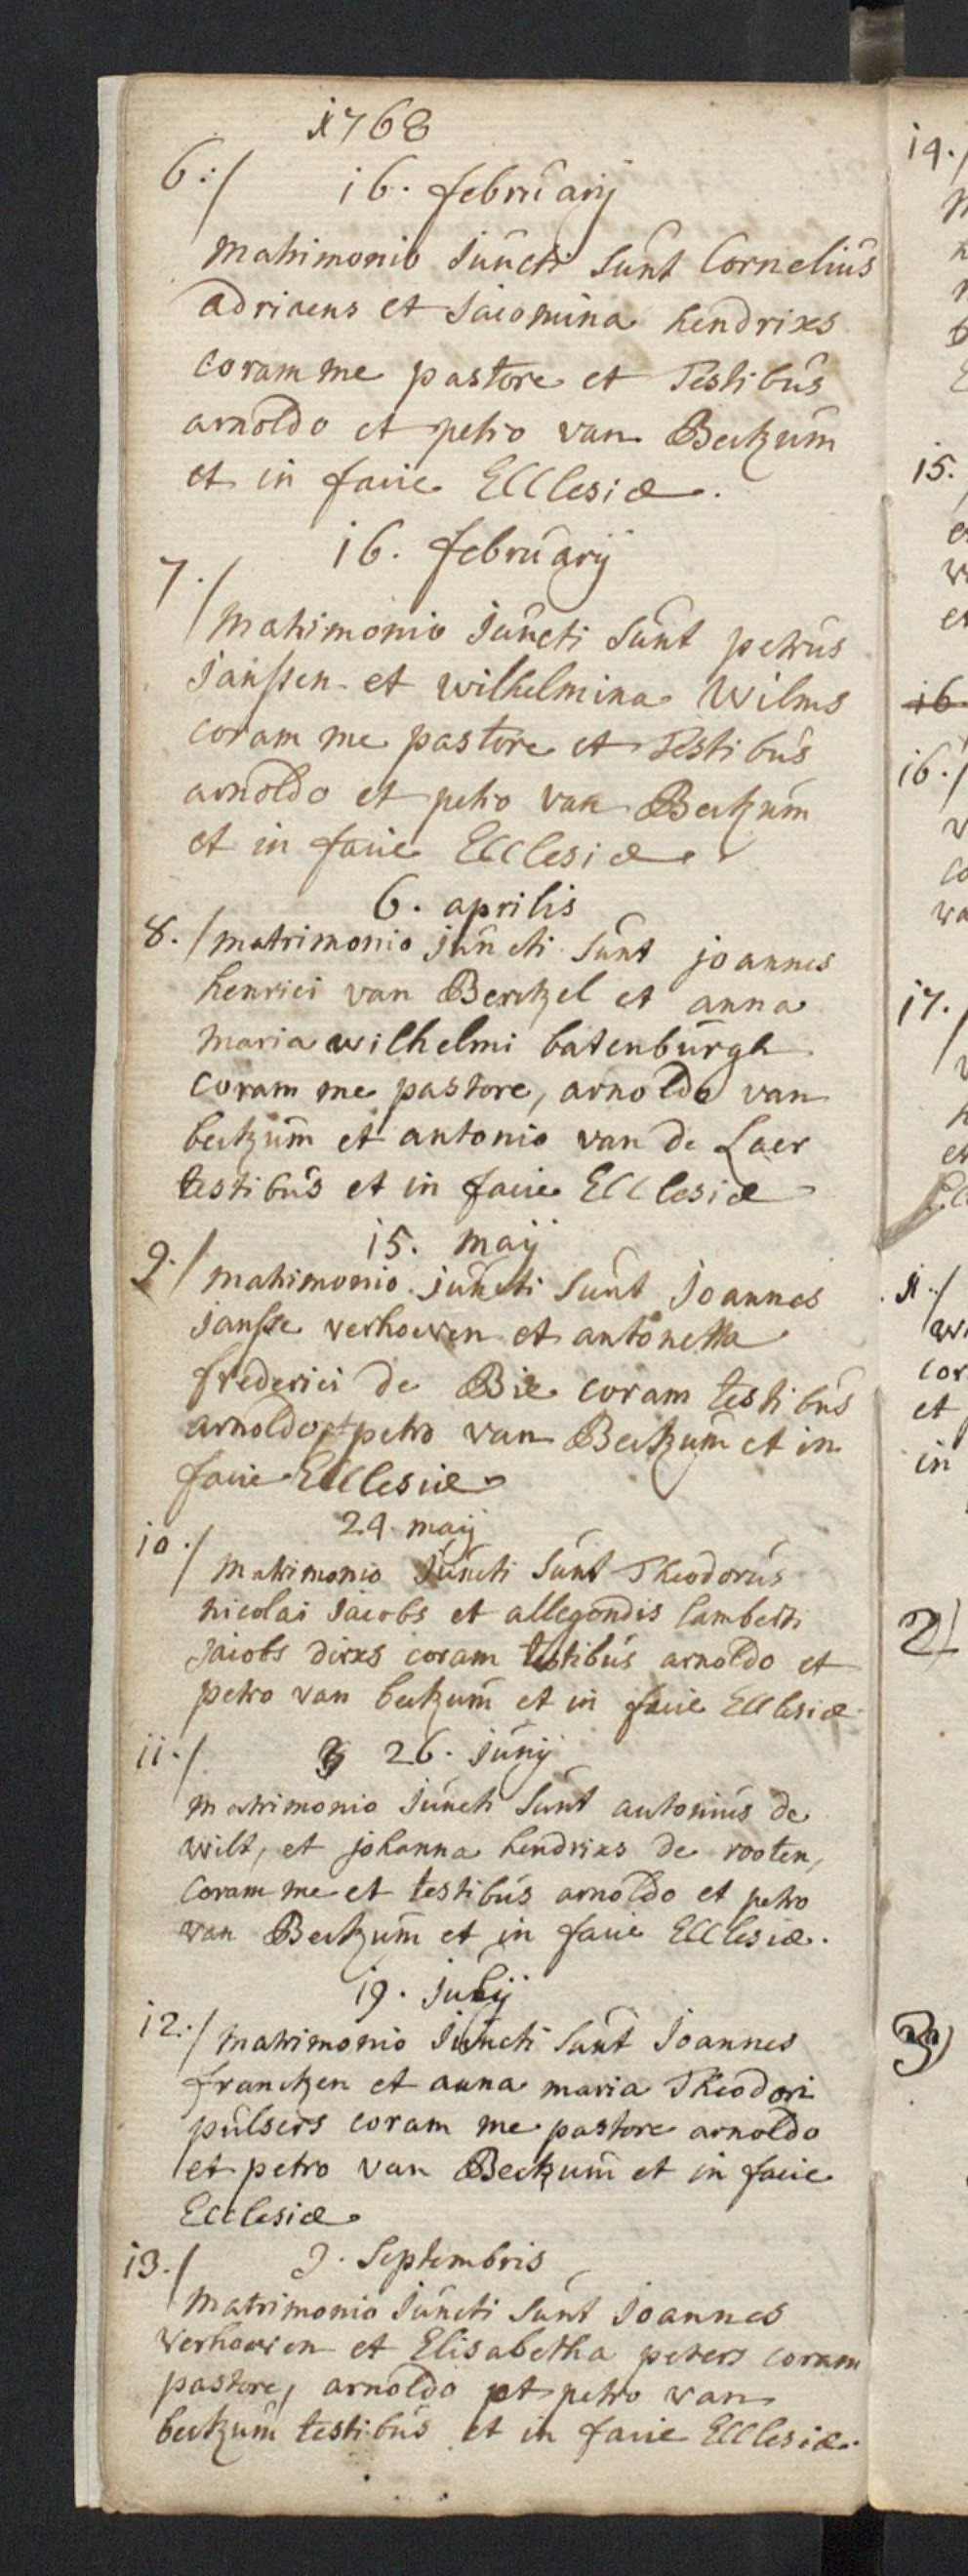 1768
6:/ 16. februarij
Matrimonio Juncti Sunt Cornelius
adriaens et Jacomina hendrixs
coram me pastore et Testibus
arnoldo et petro van Beckum
et in facie Ecclesiæ.
16. februarij
7./
Matrimonio Juncti Sunt petrus
Janssen et wilhelmina Wilms
coram me pastore et Testibus
arnoldo et petro van Beckum
et in facie Ecclesiæ.
6. aprilis
8./ matrimonio juncti Sunt joannes
henrici van Berckel et anna
maria wilhelmi batenburgh
coram me pastore, arnoldo van
beckum et antonio van de Laer
testibus et in facie Ecclesiæ
15. maij
9./ matrimonio juncti Sunt Joannes
Jansse verhoeven et antonetta
frederici de Bie coram testibus
arnoldo et petro van Beckum et in
facie Ecclesiæ
24 maij
10./
Matrimonio Juncti Sunt Theodorus
nicolai Jacobs et allegondis lamberti
Jacobs dirxs coram testibus arnoldo et
petro van beckum et in facie Ecclesiæ
11./ 26. Junij
Matrimonio Juncti Sunt antonius de
wilt, et johanna hendrixs de rooten,
coram me et testibus arnoldo et petro
van Beckum et in facie Ecclesiæ.
19. Julij
12:/ Matrimonio Juncti Sunt Joannes
francken et anna maria Theodori
pulsers coram me pastore arnoldo
et petro van Beckum et in facie
Ecclesiæ
13./ Septembris
Matrimonio Juncti Sunt Joannes
verhoeven et Elisabetha peters coram
pastore, arnoldo et petro van
beckum testibus et in facie Ecclesiæ.
14./
15.
16
16./
17.
1./
cor
et
in
2)
3)